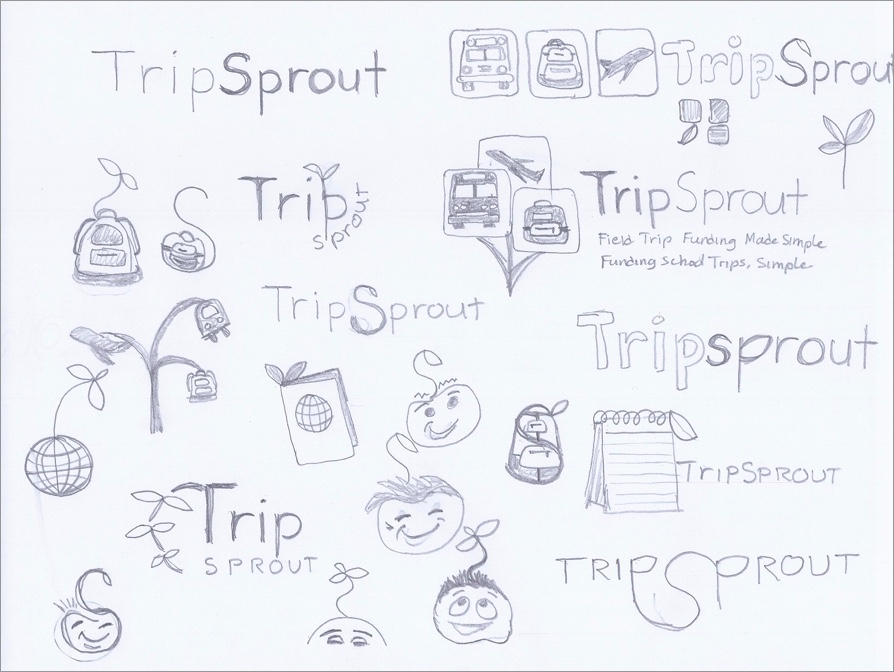 TripSprout
TripSprout
Trip
sprout
TripSprout
Field Trip Funding Made Simple
Funding School Trips, Simple
TripSprout
Tripsprout
TRIPSPROUT
Trip
SPROUT
TRIPSPROUT